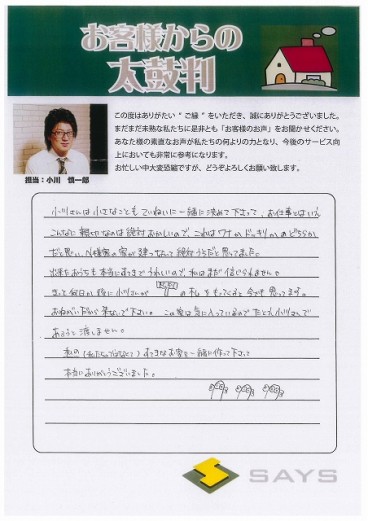 お客様からの
太鼓判
この度はありがたい“ご縁”をいただき、誠にありがとうございました。
まだまだ未熟な私たちに是非とも「お客様のお声」をお聞かせください。
あなた様の素直なお声が私たちの何よりの力となり、今後のサービス向
上においても非常に参考になります。
お忙しい中大変恐縮ですが、どうぞよろしくお願い致します。
担当：小川 慎一郎
小川さんは小さなこともていねいに一緒に決めて下さって、お仕事とはいえ
こんなに親切なのは絶対おかしいので、これはワナかドッキリかのどちらか
だと思い、N様邸の家が建つなんて絶対うそだと思ってました。
出来たおうちも本当にすてきでうれしいので、私はまだ信じられません。
きっと何日か後に小川さんが の札をもってくると今でも思ってます。
おねがいだから来ないで下さい。この家は気に入っているのでたとえ小川さんで
あろうと渡しません。
私の すてきなお家を一緒に作って下さって
本当にありがとうございました。
SAYS